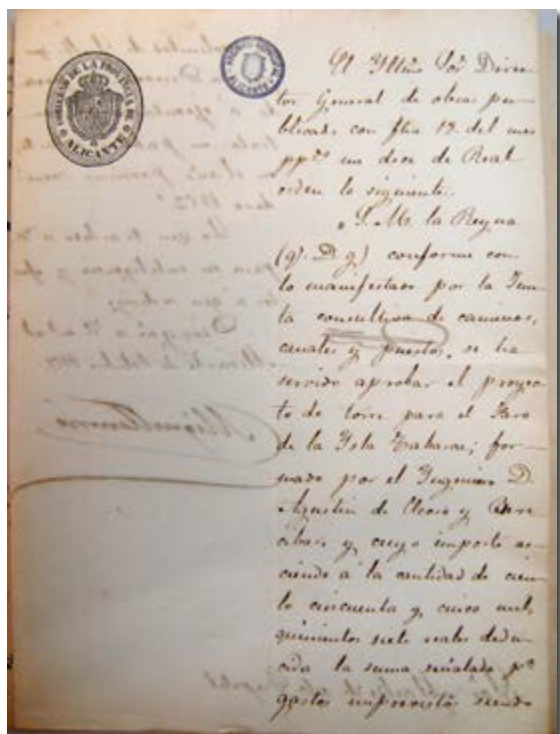 GOBIERNO DE LA PROVINCIA DE ALICANTE
El Yltmo Sor Direc
tor General de obras pu
blicas con fha 19. del mes
ppdo me dice de Real
orden lo siguiente.
"S. M. la Reyna
(q. D. g.) conforme con
lo manifestado por la Jun
ta consultiva de caminos,
canales y puertos, se ha
servido aprobar el proyec
to de torre para el Faro
de la Ysla Tabarca; for
mado por el Yngeniero D.
Agustin de Elcoro y Bere
cibar, y cuyo importe as
ciende a la cantidad de cien
to cincuenta y cinco mil
quinientos siete reales dedu
cida la suma señalada pa
gastos imprevistos siendo